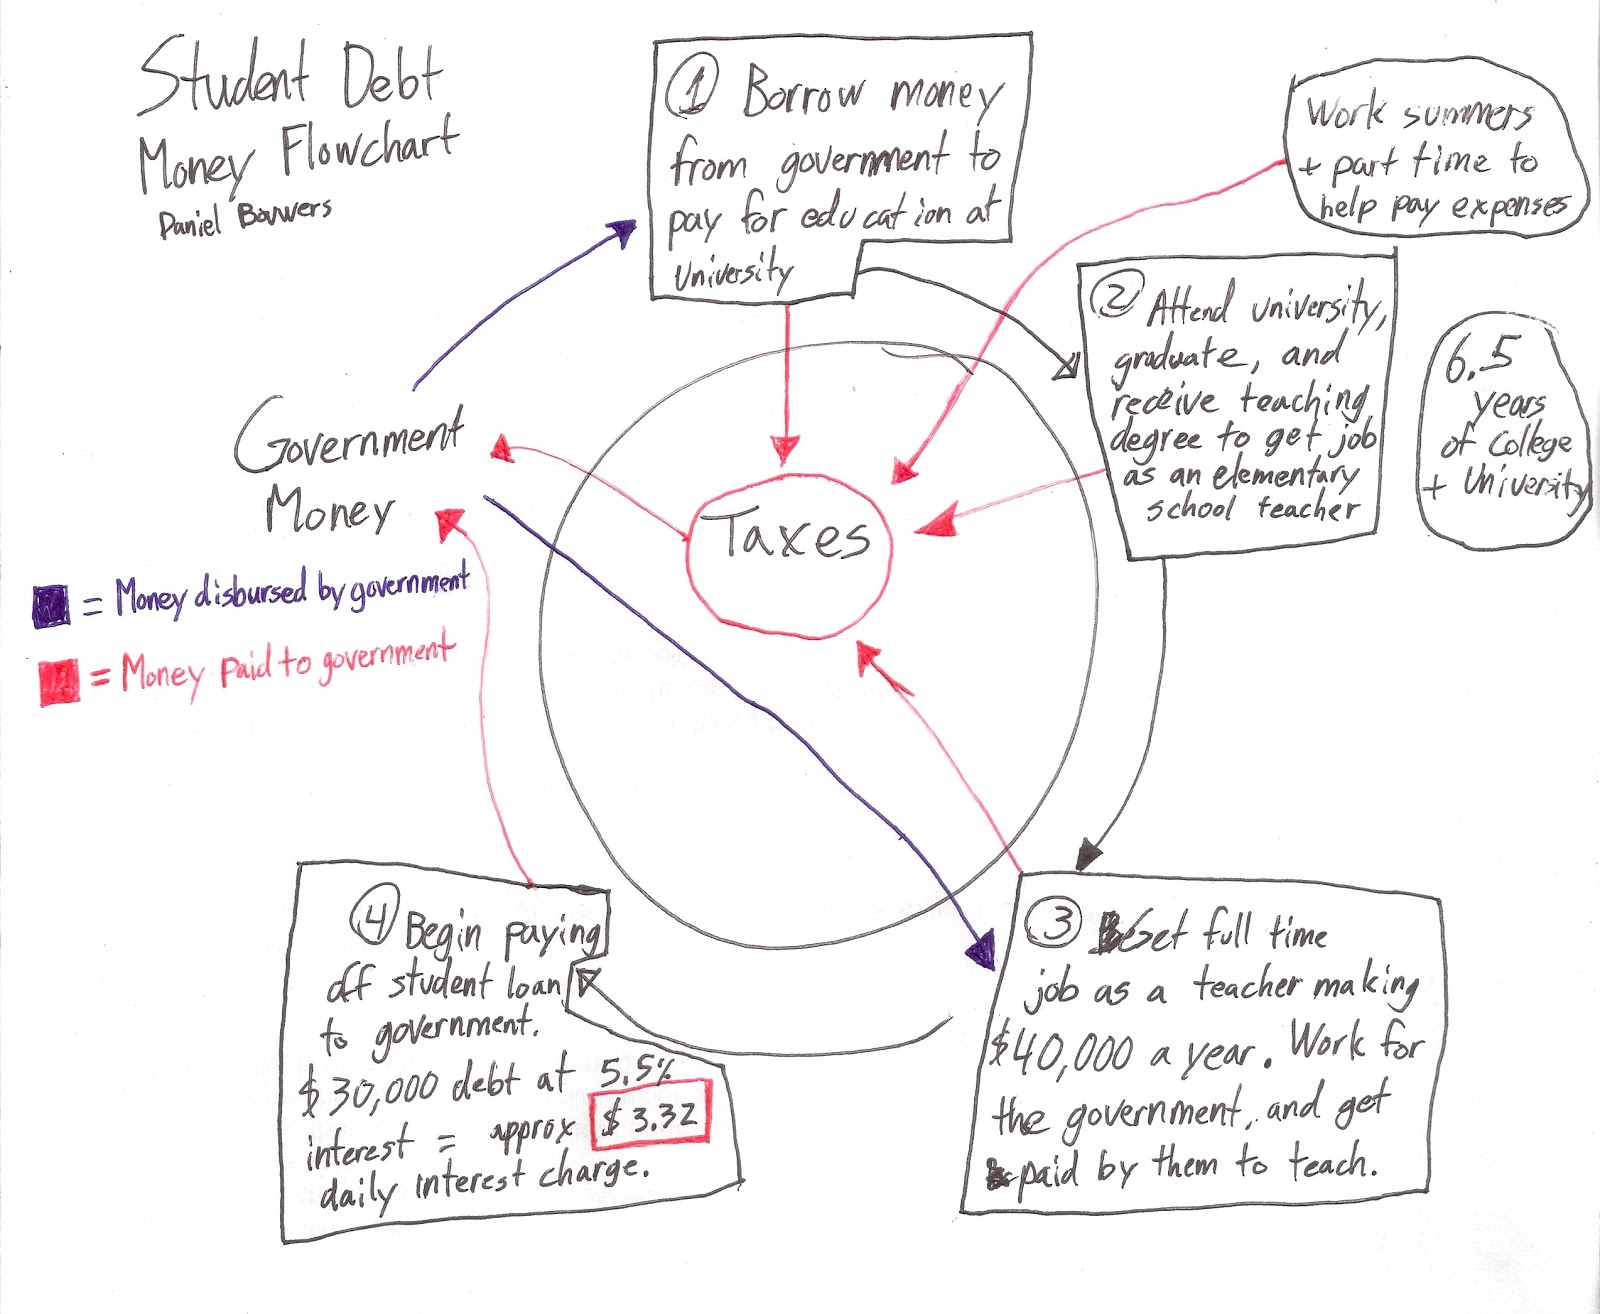 Student Debt
Money Flowchart
Daniel Bouwers
1 Borrow money
from government to
pay for education at
University
Work summers
+ part time to
help pay expenses
2 Attend university,
graduate, and
receive teaching
degree to get job
as an elementary
school teacher
6.5
years
of College
+ University
Government
Money
Taxes
= Money disbursed by government
= Money paid to government
3 Get full time
job as a teacher making
$40,000 a year. Work for
the government, and get
paid by them to teach.
4 Begin paying
off student loan
to government.
$30,000 debt at 5.5%
interest = approx $3.32
daily interest charge.